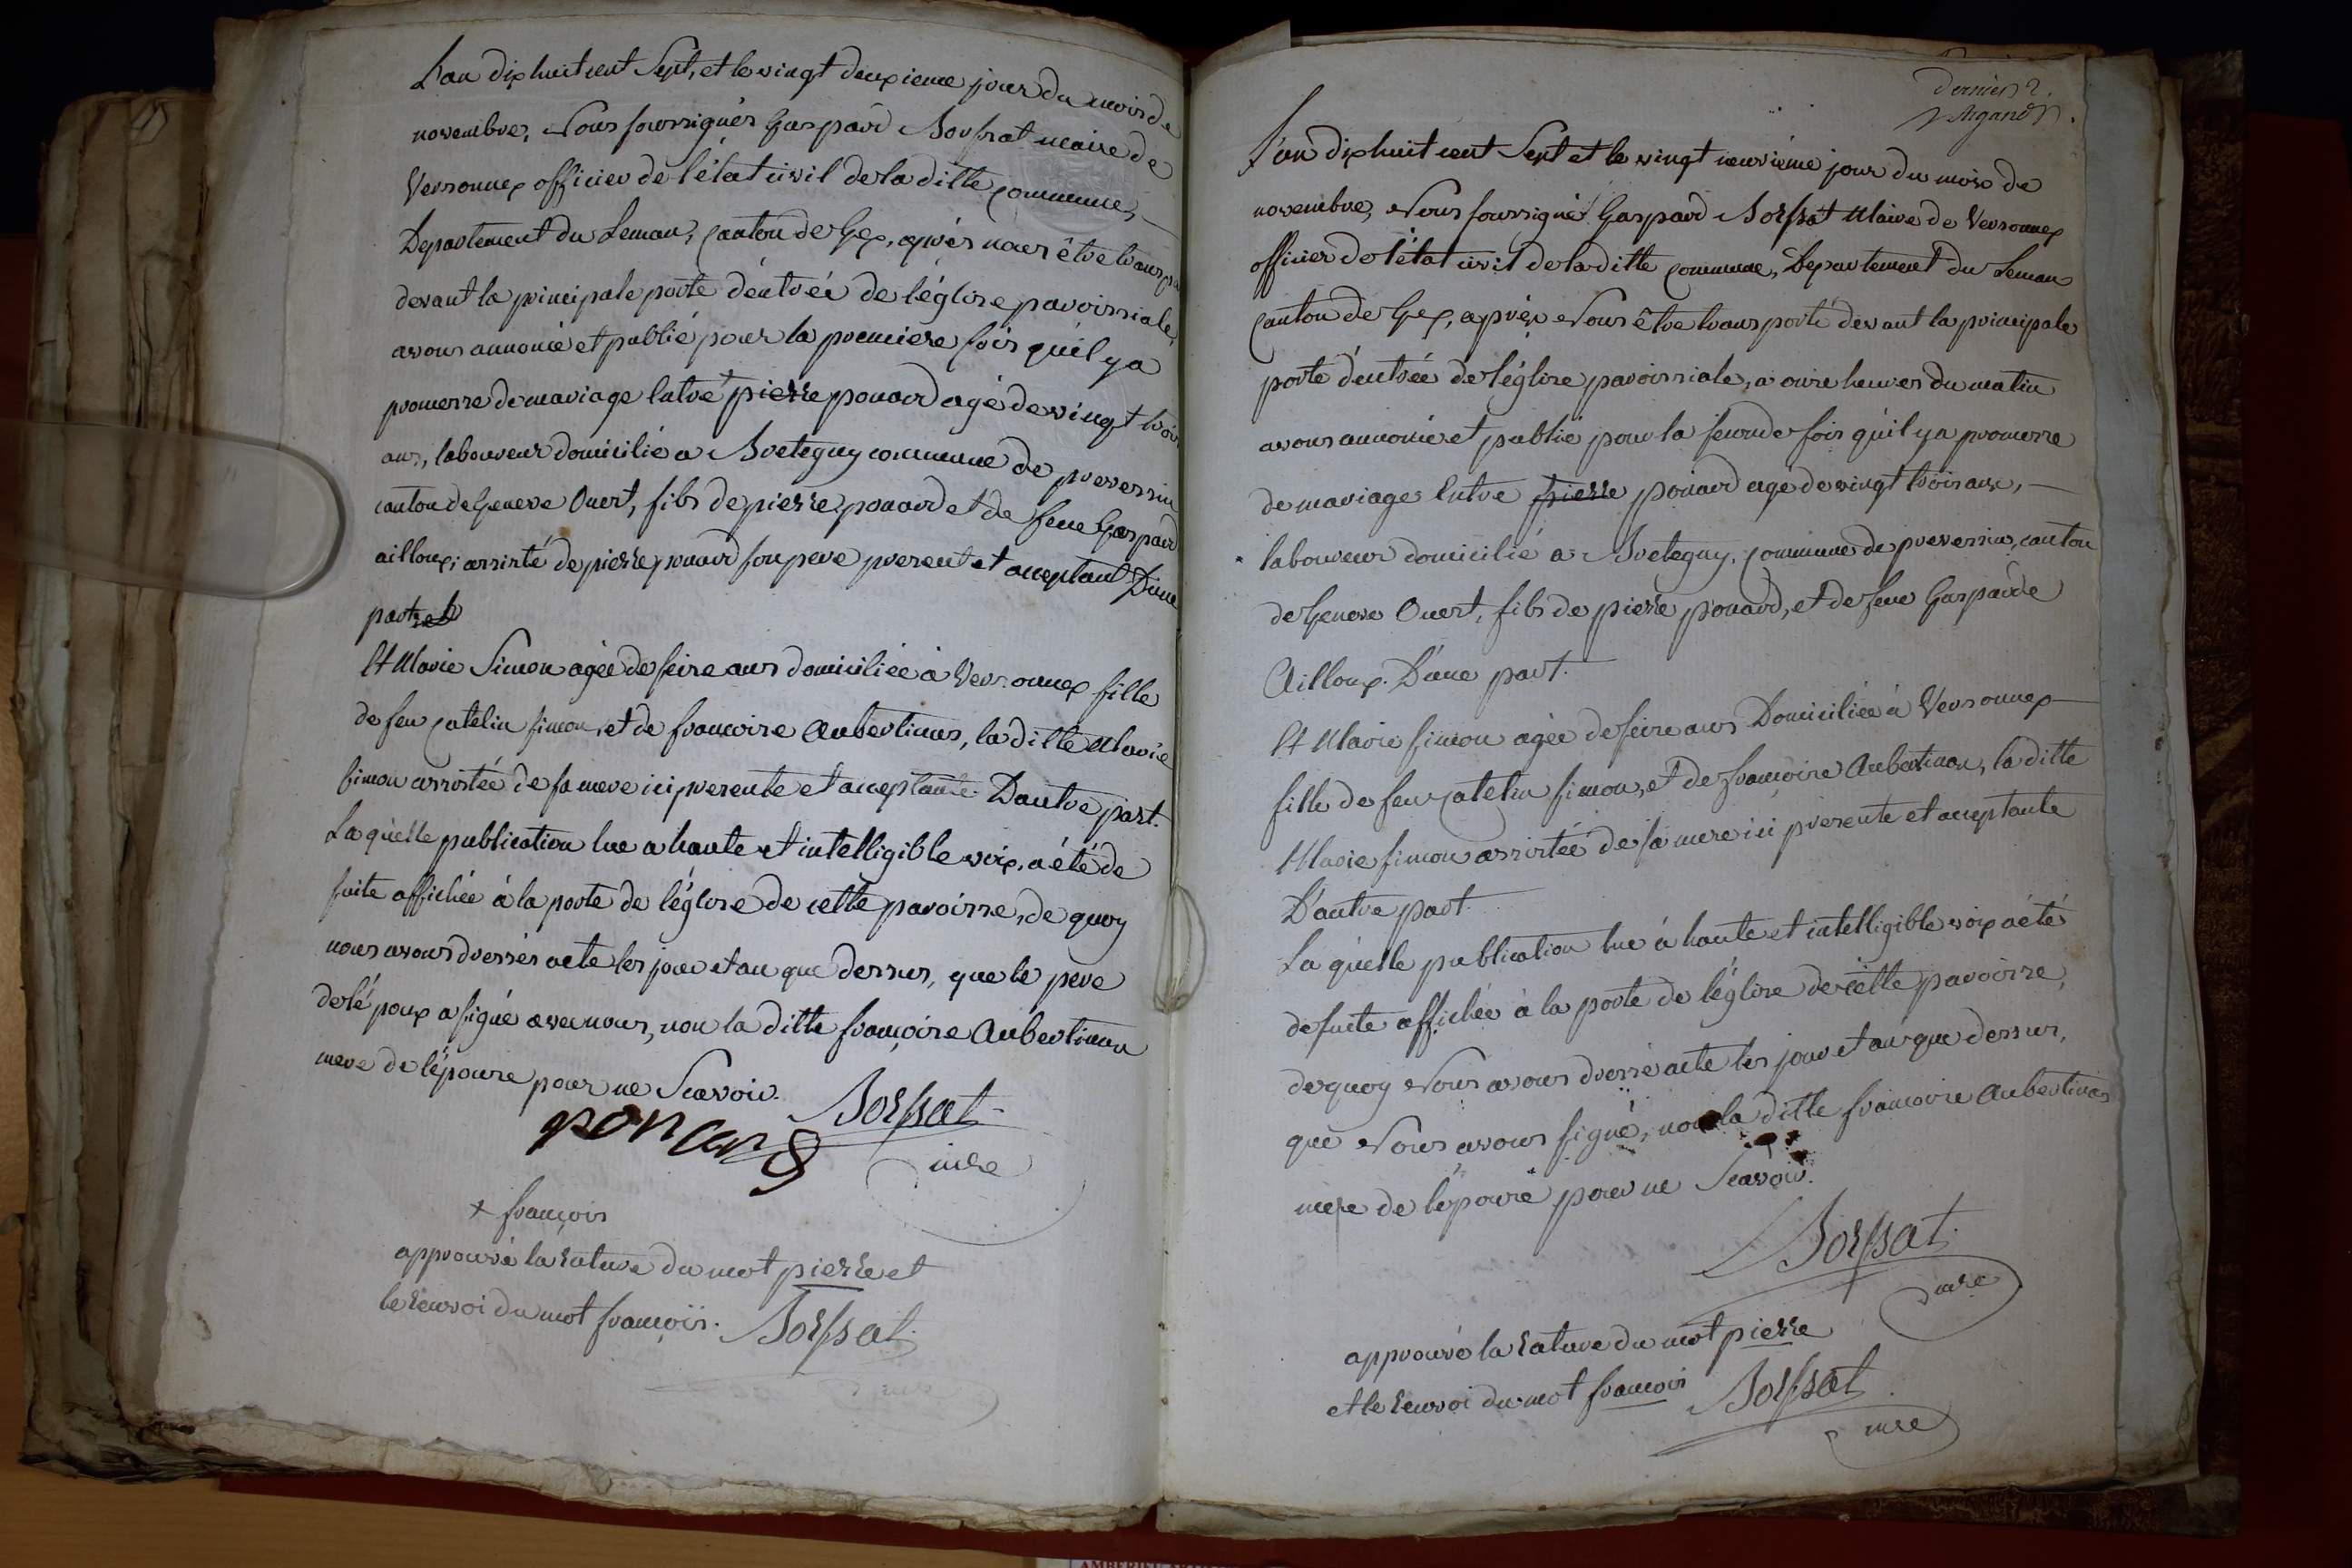 L'an dix huit cent Sept, et le vingt deuxieme jour du mois de
novembre, Nous soussignés Gaspard Borssat maire de
Versonnex officier de l'état civil de la ditte commune,
Departement du Leman, Canton de Gex, après nous être transporté
devant la principale porte d'entrée de l'église paroissiale,
avons annoncé et publié pour la premiere fois qu'il y a
promesse de mariage Entre + pierre ponard agé de vingt trois
ans, laboureur domicilié a Bretegny commune de prevessin
canton de Geneve Ouest, fils de pierre ponard et de feue Gaspard
ailloux; assisté de pierre ponard son pere present et acceptant D'une
part et
Et Marie Simon agée de seize ans domiciliée à Versonnex fille
de feu Catelin simon, et de francoise Aubertinas, la ditte Marie
simon assistée de sa mere ici presente et acceptante. D'autre part.
La quelle publication lue a haute et intelligible voix, a été de
suite affichée à la porte de l'église de cette paroisse, de quoy
nous avons dressés acte les jour et an que dessus, que le pere
de l'époux a signé avec nous, non la ditte françoise Aubertinas
mere de l'épouse pour ne Scavoir.
ponard Borssat
mre
+ françois
approuvé la rature du mot pierre et
le renvoi du mot françois. Borssat
mre
dernier 2.
L'an dix huit cent Sept et le vingt neuvième jour du mois de
novembre, Nous soussigné Gaspard Borssat Maire de Versonnex
officier de l'état civil de la ditte commune, Departement du Leman
Canton de Gex, après Nous être transporté devant la principale
porte d'entrée de l'église paroissiale, a onze heures du matin
avons annoncé et publié pour la seconde fois qu'il y a promesse
de mariage Entre pierre ponard agé de vingt trois ans,
laboureur domicilié a Bretegny, commune de prevessin, canton
de Geneve Ouest, fils de pierre ponard, et de feue Gasparde
Ailloux. D'une part.
Et Marie simon agée de seize ans Domiciliée à Versonnex
fille de feu Catelin simon, et de francoise Aubertinas, la ditte
Marie simon assistée de sa mere ici presente et acceptante
D'autre part.
La quelle publication lue à haute et intelligible voix a étés
de suite affichée à la porte de l'église de cette paroisse,
de quoy Nous avons dressé acte les jour et an que dessus,
que Nous avons signé, non la ditte francoise Aubertinas
mere de l'épouse pour ne Scavoir.
Borssat
mre
approuvé la rature du mot pierre
et le renvoi du mot francois Borssat
mre